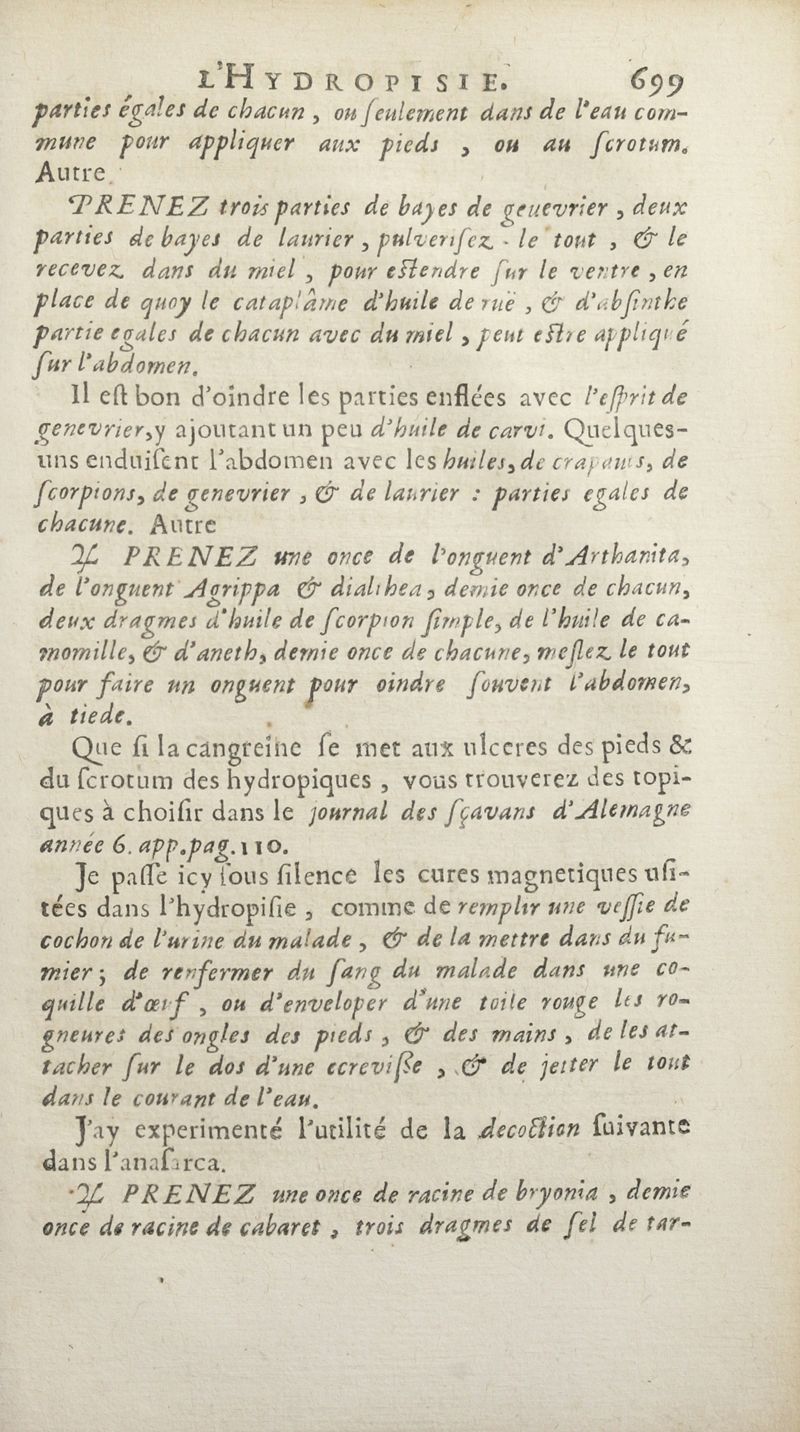 L'HYDROPISIE. 699
parties égales de chacun, ou ſeulement dans de l'eau com-
mune pour appliquer aux pieds, ou au ſcrotum.
Autre.
PRENEZ trois parties de bayes de geuevrier, deux
parties de bayes de laurier, pulveriſez - le tout, & le
recevez dans du miel, pour eſtendre ſur le ventre, en
place de quoy le cataplâme d'huile de ruë, & d'abſinthe
partie egales de chacun avec du miel, peut eſtre appliqué
ſur l'abdomen.
Il eſt bon d'oindre les parties enflées avec l'eſprit de
genevrier, y ajoutant un peu d'huile de carvi. Quelques-
uns enduiſent l'abdomen avec les huiles, de crapauts, de
ſcorpions, de genevrier, & de laurier : parties egales de
chacune. Autre
℞ PRENEZ une once de l'onguent d'Arthanita,
de l'onguent Agrippa & dialthea, demie once de chacun,
deux dragmes d'huile de ſcorpion ſimple, de l'huile de ca-
momille, & d'aneth, demie once de chacune, meſlez le tout
pour faire un onguent pour oindre ſouvent l'abdomen,
à tiede.
Que ſi la cangreine ſe met aux ulceres des pieds &
du ſcrotum des hydropiques, vous trouverez des topi-
ques à choiſir dans le journal des ſçavans d'Alemagne
année 6. app. pag. 110.
Je paſſe icy ſous ſilence les cures magnetiques uſi-
tées dans l'hydropiſie, comme de remplir une veſſie de
cochon de l'urine du malade, & de la mettre dans du fu-
mier; de renfermer du ſang du malade dans une co-
quille d'œuf, ou d'enveloper d'une toile rouge les ro-
gneures des ongles des pieds, & des mains, de les at-
tacher ſur le dos d'une ecreviſſe, & de jetter le tout
dans le courant de l'eau.
J'ay experimenté l'utilité de la decoction ſuivante
dans l'anaſarca.
℞ PRENEZ une once de racine de bryonia, demie
once de racine de cabaret, trois dragmes de ſel de tar-